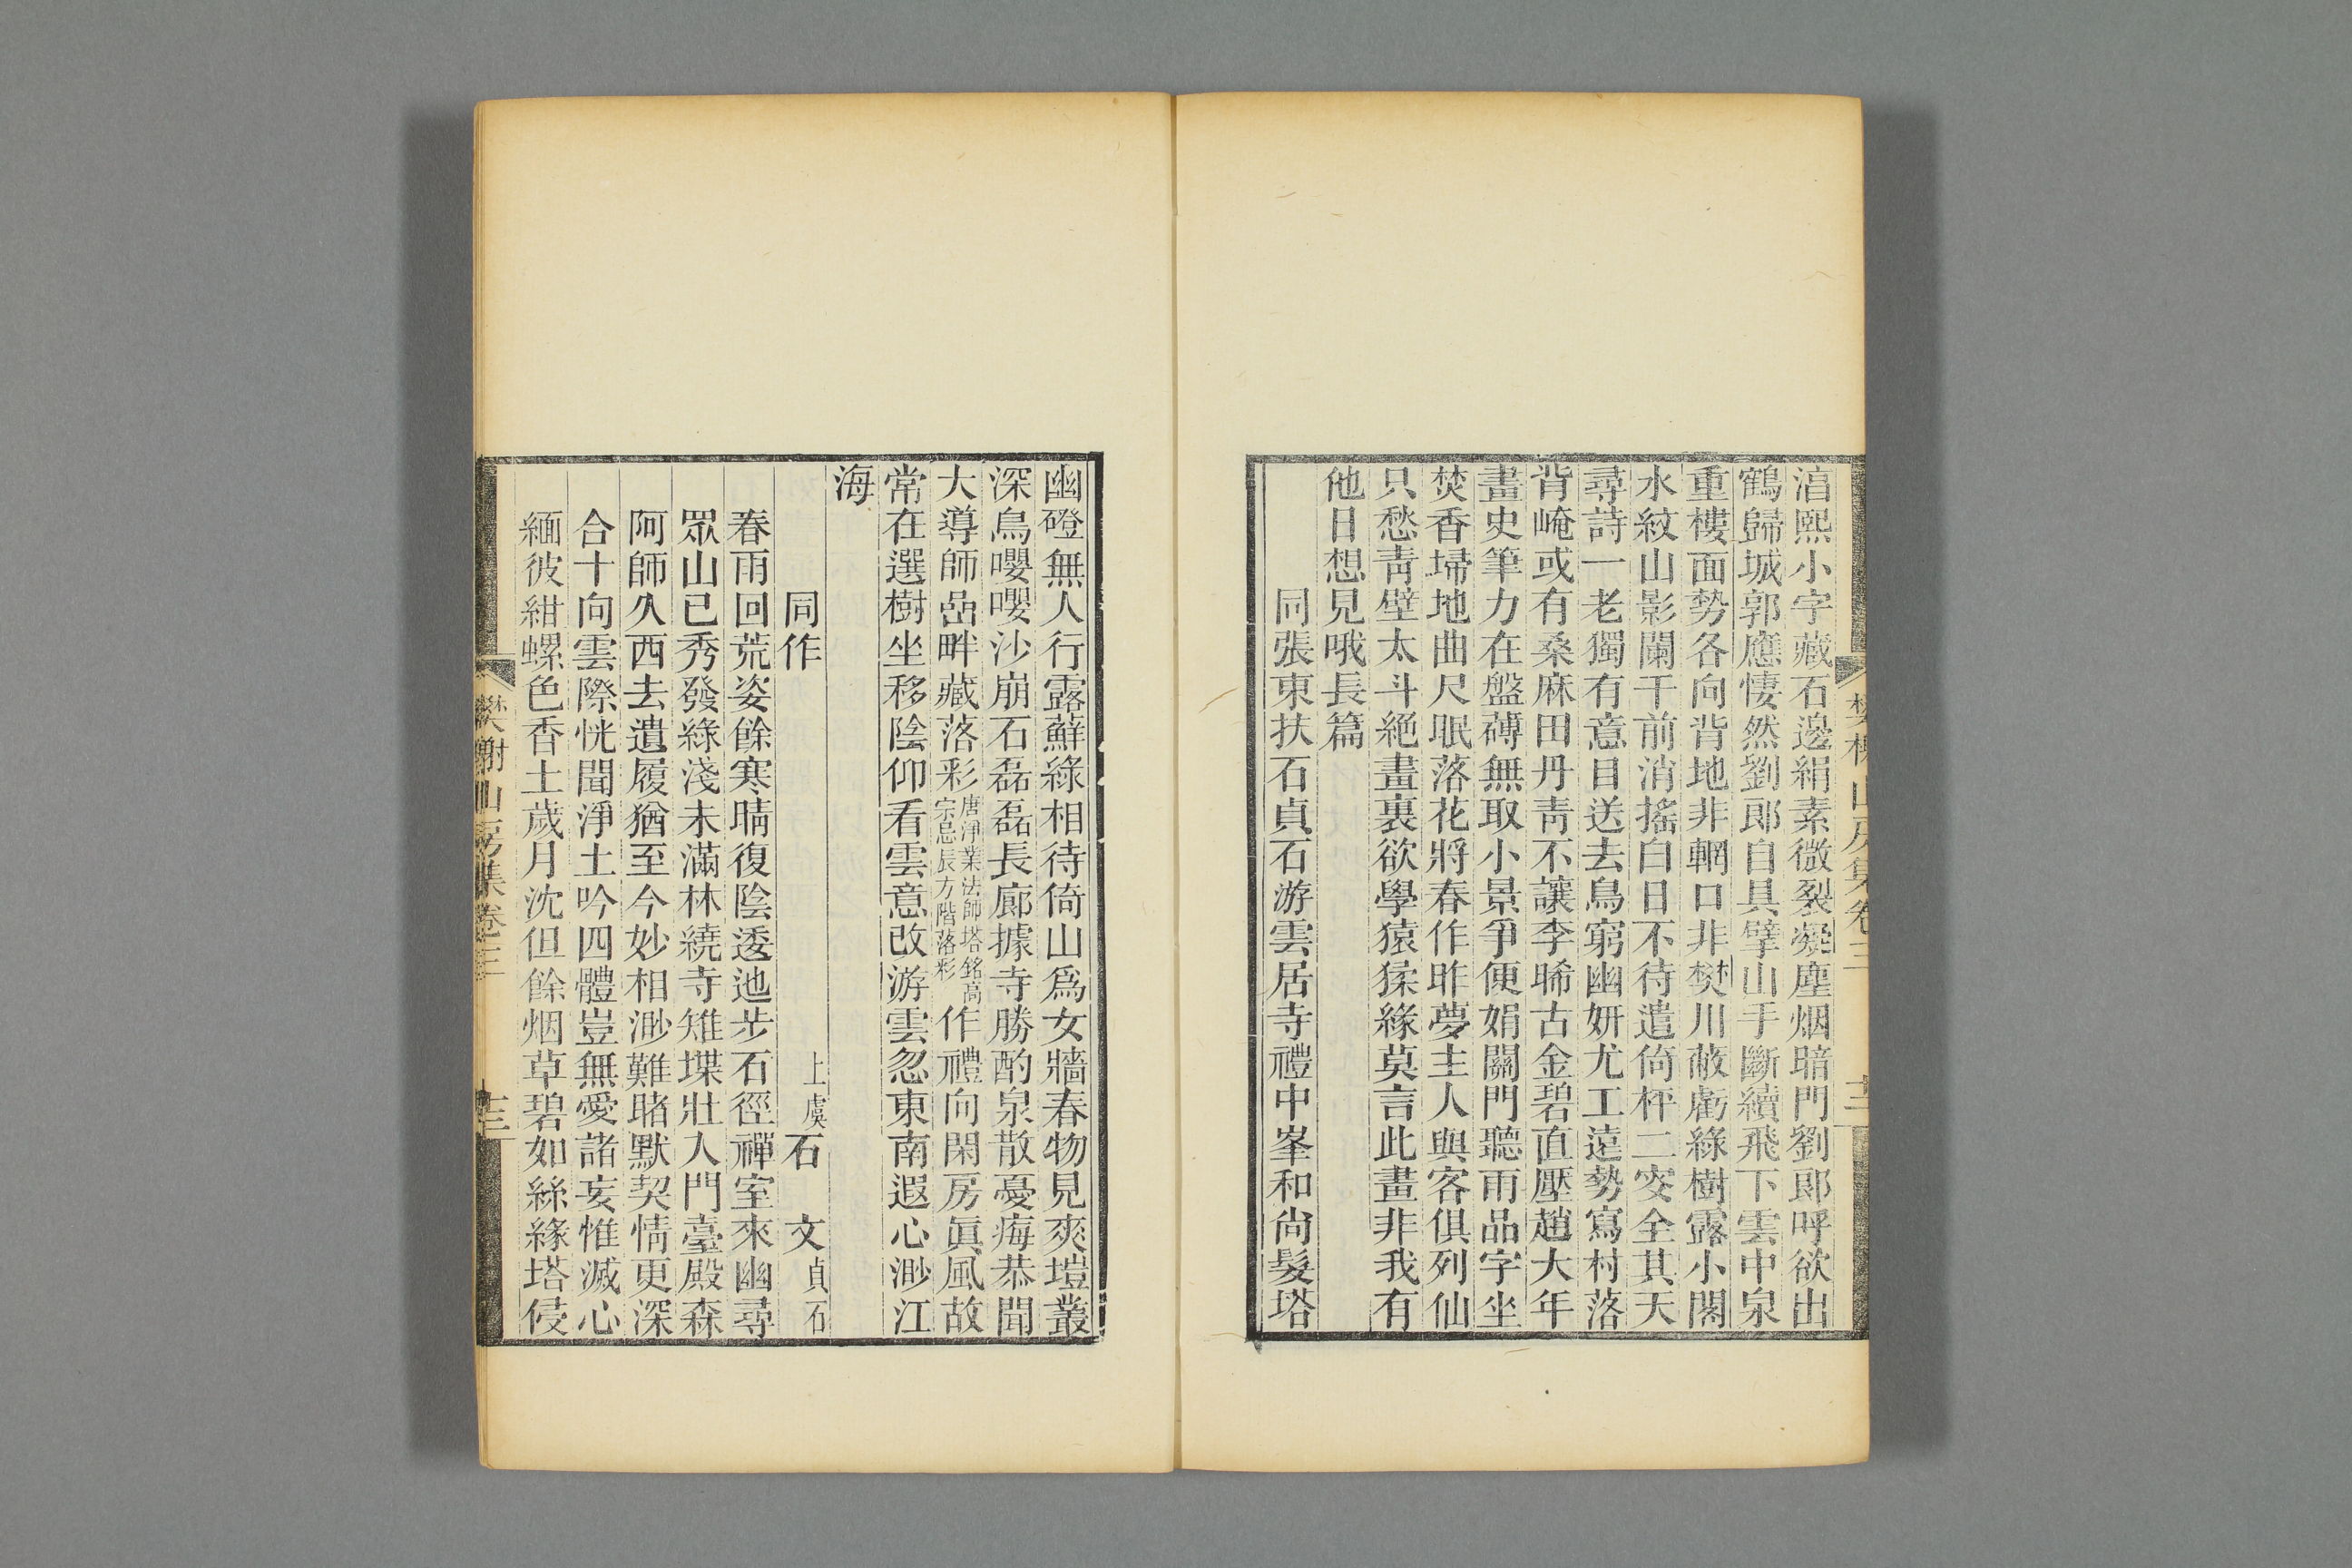 樊榭山房集卷三
十二
湻熙小字藏石邊絹素微裂凝塵烟暗門劉郎呼欲出
鶴歸城郭應悽然劉郎自具擘山手斷續飛下雲中泉
重樓面勢各向背地非輞口非樊川蔽虧綠樹露小閣
水紋山影闌干前消搖白日不待遣倚枰二叟全其天
尋詩一老獨有意目送去鳥窮幽妍尤工遠勢寫村落
背崦或有桑麻田丹靑不讓李晞古金碧直壓趙大年
畫史筆力在盤礴無取小景爭便娟關門聽雨品字坐
焚香埽地曲尺眠落花將春作昨夢主人與客俱列仙
只愁靑壁太斗絕畫裏欲學猿猱緣莫言此畫非我有
他日想見哦長篇
同張東扶石貞石游雲居寺禮中峯和尙髮塔
幽磴無人行露蘚綠相待倚山爲女牆春物見爽塏叢
深鳥嚶嚶沙崩石磊磊長廊據寺勝酌泉散憂痗恭聞
大導師嵒畔藏落彩唐淨業法師塔銘高宗忌辰方階落彩作禮向閑房眞風故
常在選樹坐移陰仰看雲意改游雲忽東南遐心渺江
海
同作 上虞石 文貞石
春雨回荒姿餘寒晴復陰逶迆步石徑禪室來幽尋
眾山已秀發綠淺未滿林繞寺雉堞壯入門臺殿森
阿師久西去遺履猶至今妙相渺難睹默契情更深
合十向雲際恍聞淨土吟四體豈無愛諸妄惟滅心
緬彼紺螺色香土歲月沈但餘烟草碧如絲緣塔侵
樊榭山房集卷三
十三